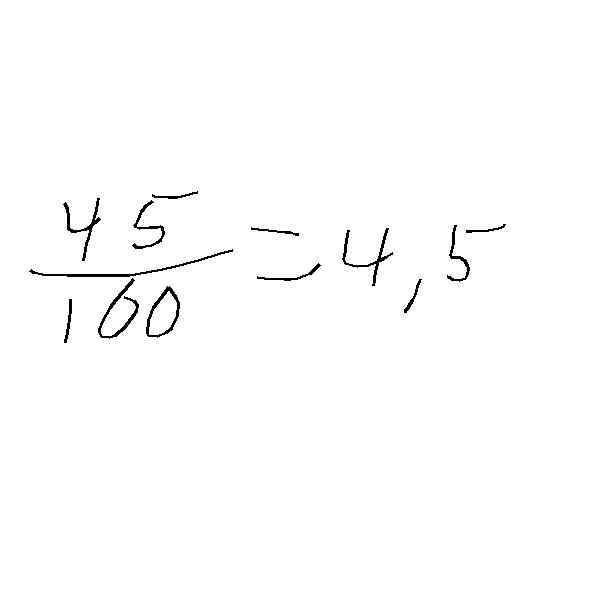 45/100 = 4,5